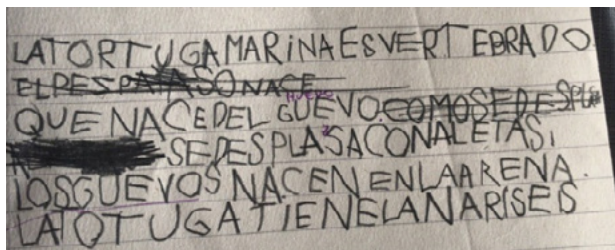 LA TORTUGA MARINA ES VERTEBRADO
EL PES PAYASO NACE
QUE NACE DEL GUEVO. COMO SE DESPLA
SE DESPLASA CON ALETAS,
LOS GUEVOS NACEN EN LA ARENA.
LA TOTUGA TIENE LA NARIS EIS